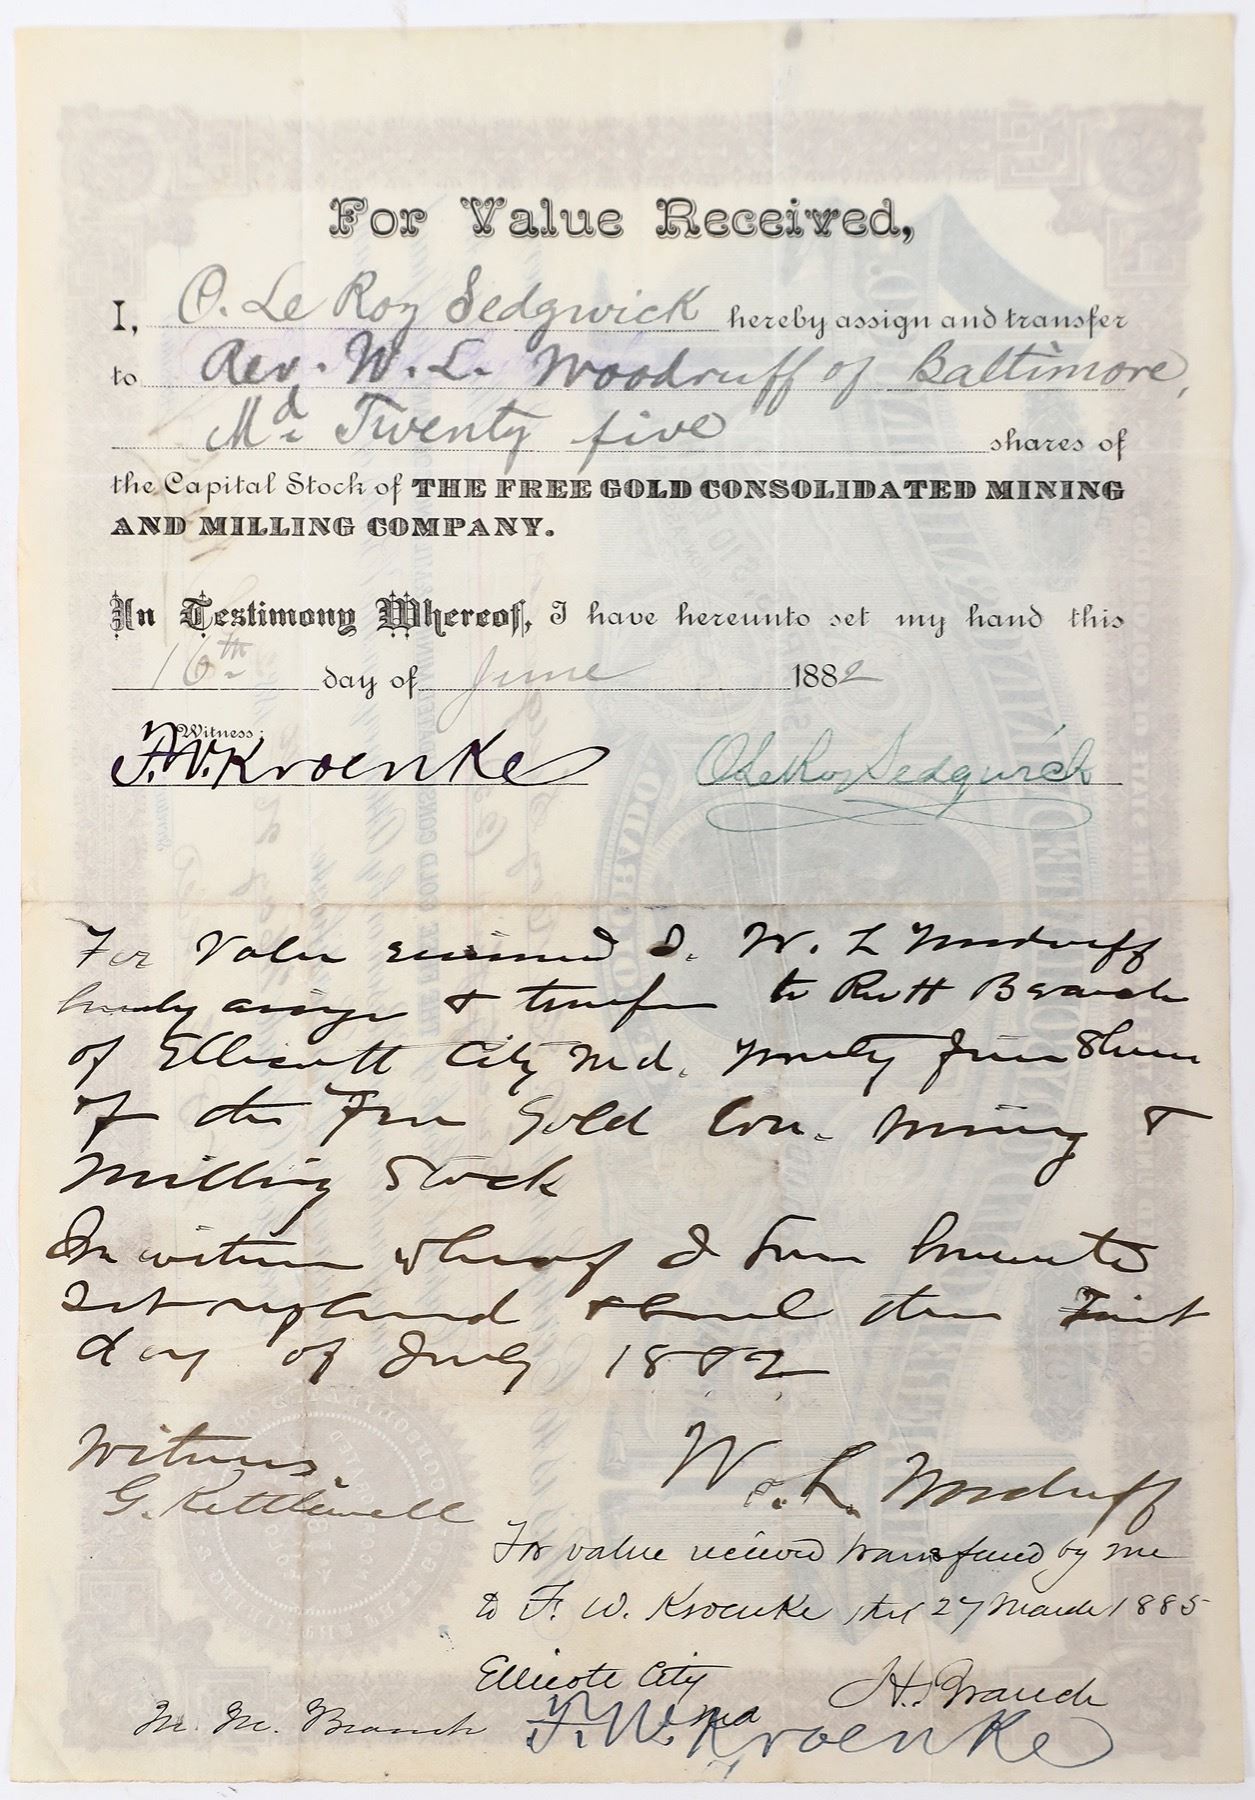 For Value Received,
I, O. Le Roy Sedgwick hereby assign and transfer
to Rev. W. L. Woodruff of Baltimore,
Md. Twenty five shares of
the Capital Stock of THE FREE GOLD CONSOLIDATED MINING
AND MILLING COMPANY.
In Testimony Whereof, I have hereunto set my hand this
16th day of June 1882
Witness:
F. W. Kroenke O Le Roy Sedgwick
For Value received I. W. L Woodruff
hereby assign & transfer to Branch
of Ellicott City Md. Twenty five Shares
of the Free Gold Con. Mining &
Milling Stock
In witness whereof I have hereunto
set my hand & seal this First
day of July 1882
Witness.
G. Kettlewell
W. L. Woodruff
For value received transfered by me
to F. W. Kroenke this 27 March 1885
Ellicott City
Md
H. Branch
M. M. Branch F. W. Kroenke